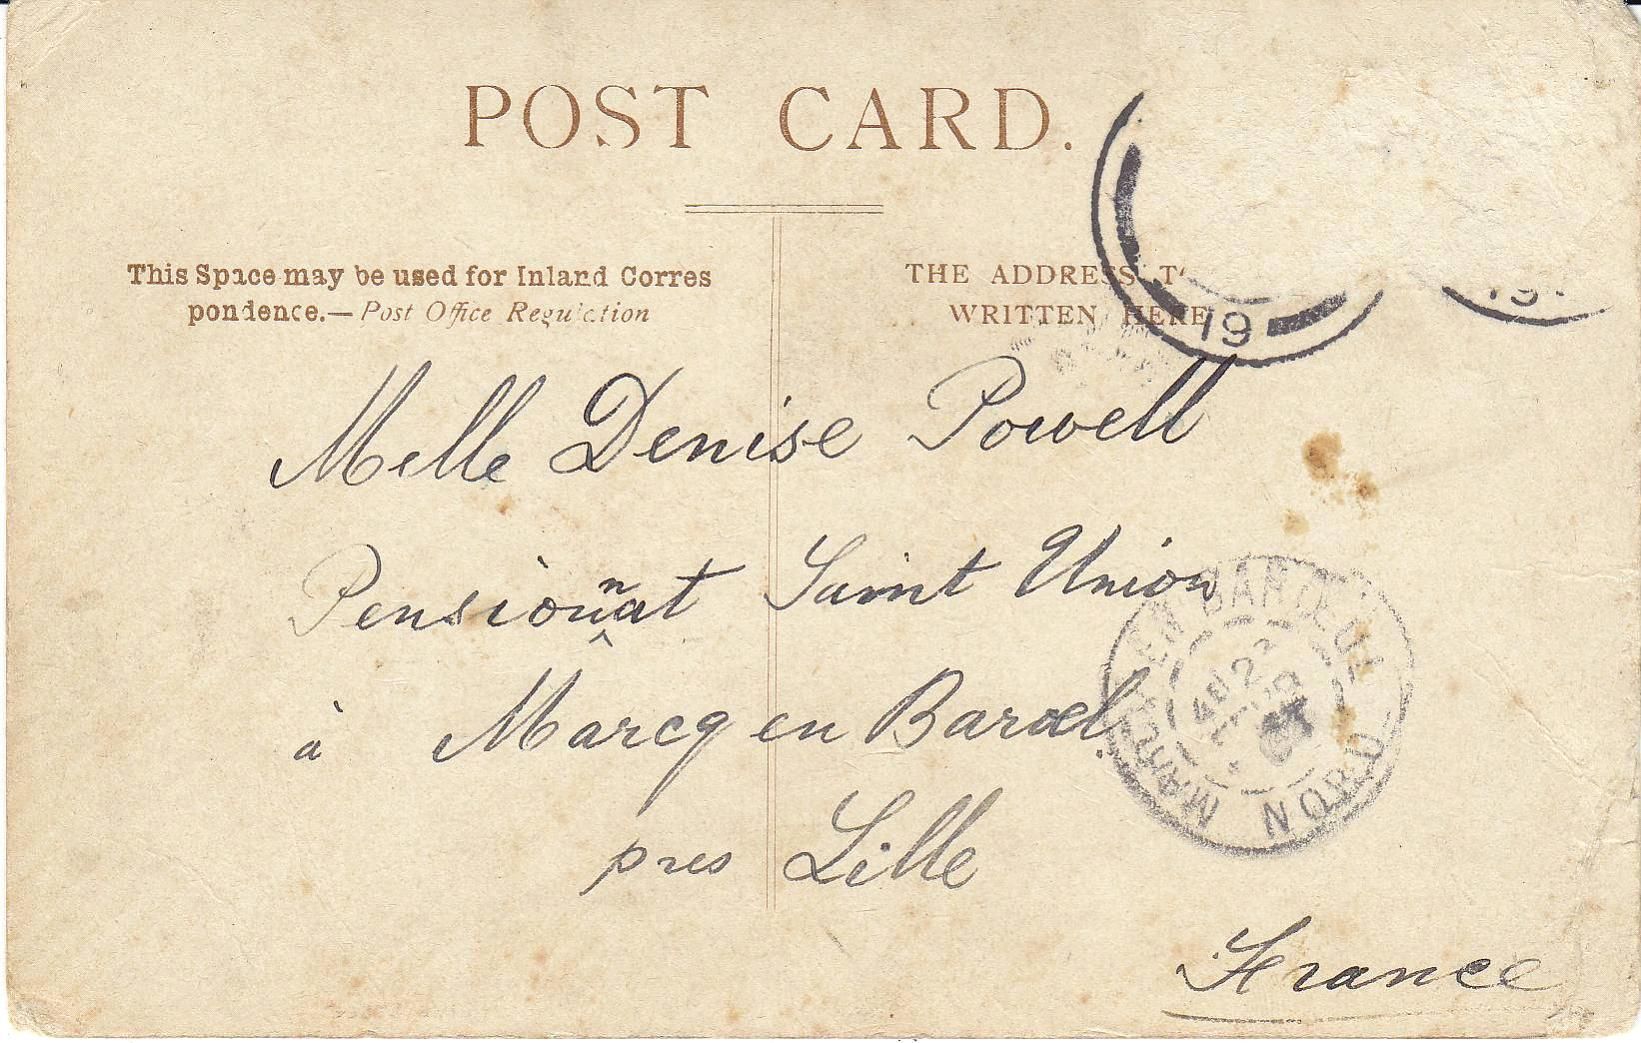 POST CARD.
This Space may be used for Inland Corres
pondence.— Post Office Regulation
THE ADDRESS T
WRITTEN HERE
19
Melle Denise Powell
Pensionnat Saint Union
à Marcq en Barœl
pres Lille
France
MARCQ EN BARŒUL
NORD